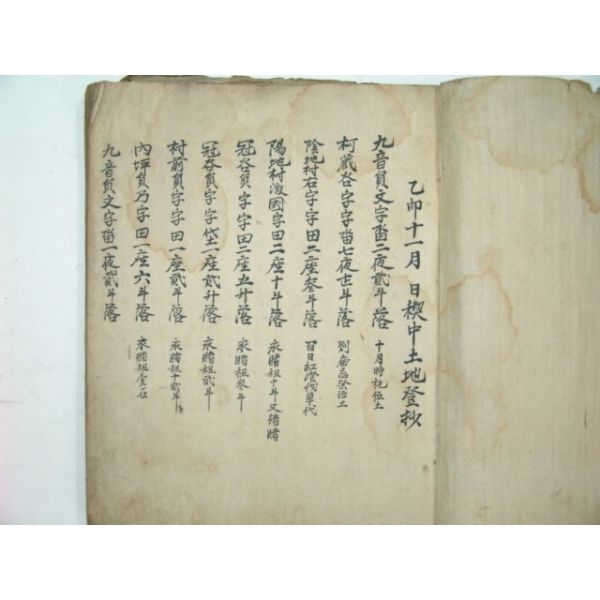 乙卯十一月 日楔中土地登抄
九音員文字畓二夜貳斗落 十月時祀位土
柯蔵谷字字畓七夜世斗落 別庙忌祭治土
陰地村石字字田二座叄斗落 百日紅澄伐草代
陽地村後國字田二座十斗落 永賭租十斗又借賭
冠谷員字字田二座五升落 永賭租叄斗
冠谷員字字垈一座貳升落 永賭租貳斗
村前員字字田一座貳斗落 永賭租十貳斗
內坪員乃字田一座六斗落 永賭租壹石
九音員文字畓一夜貳斗落